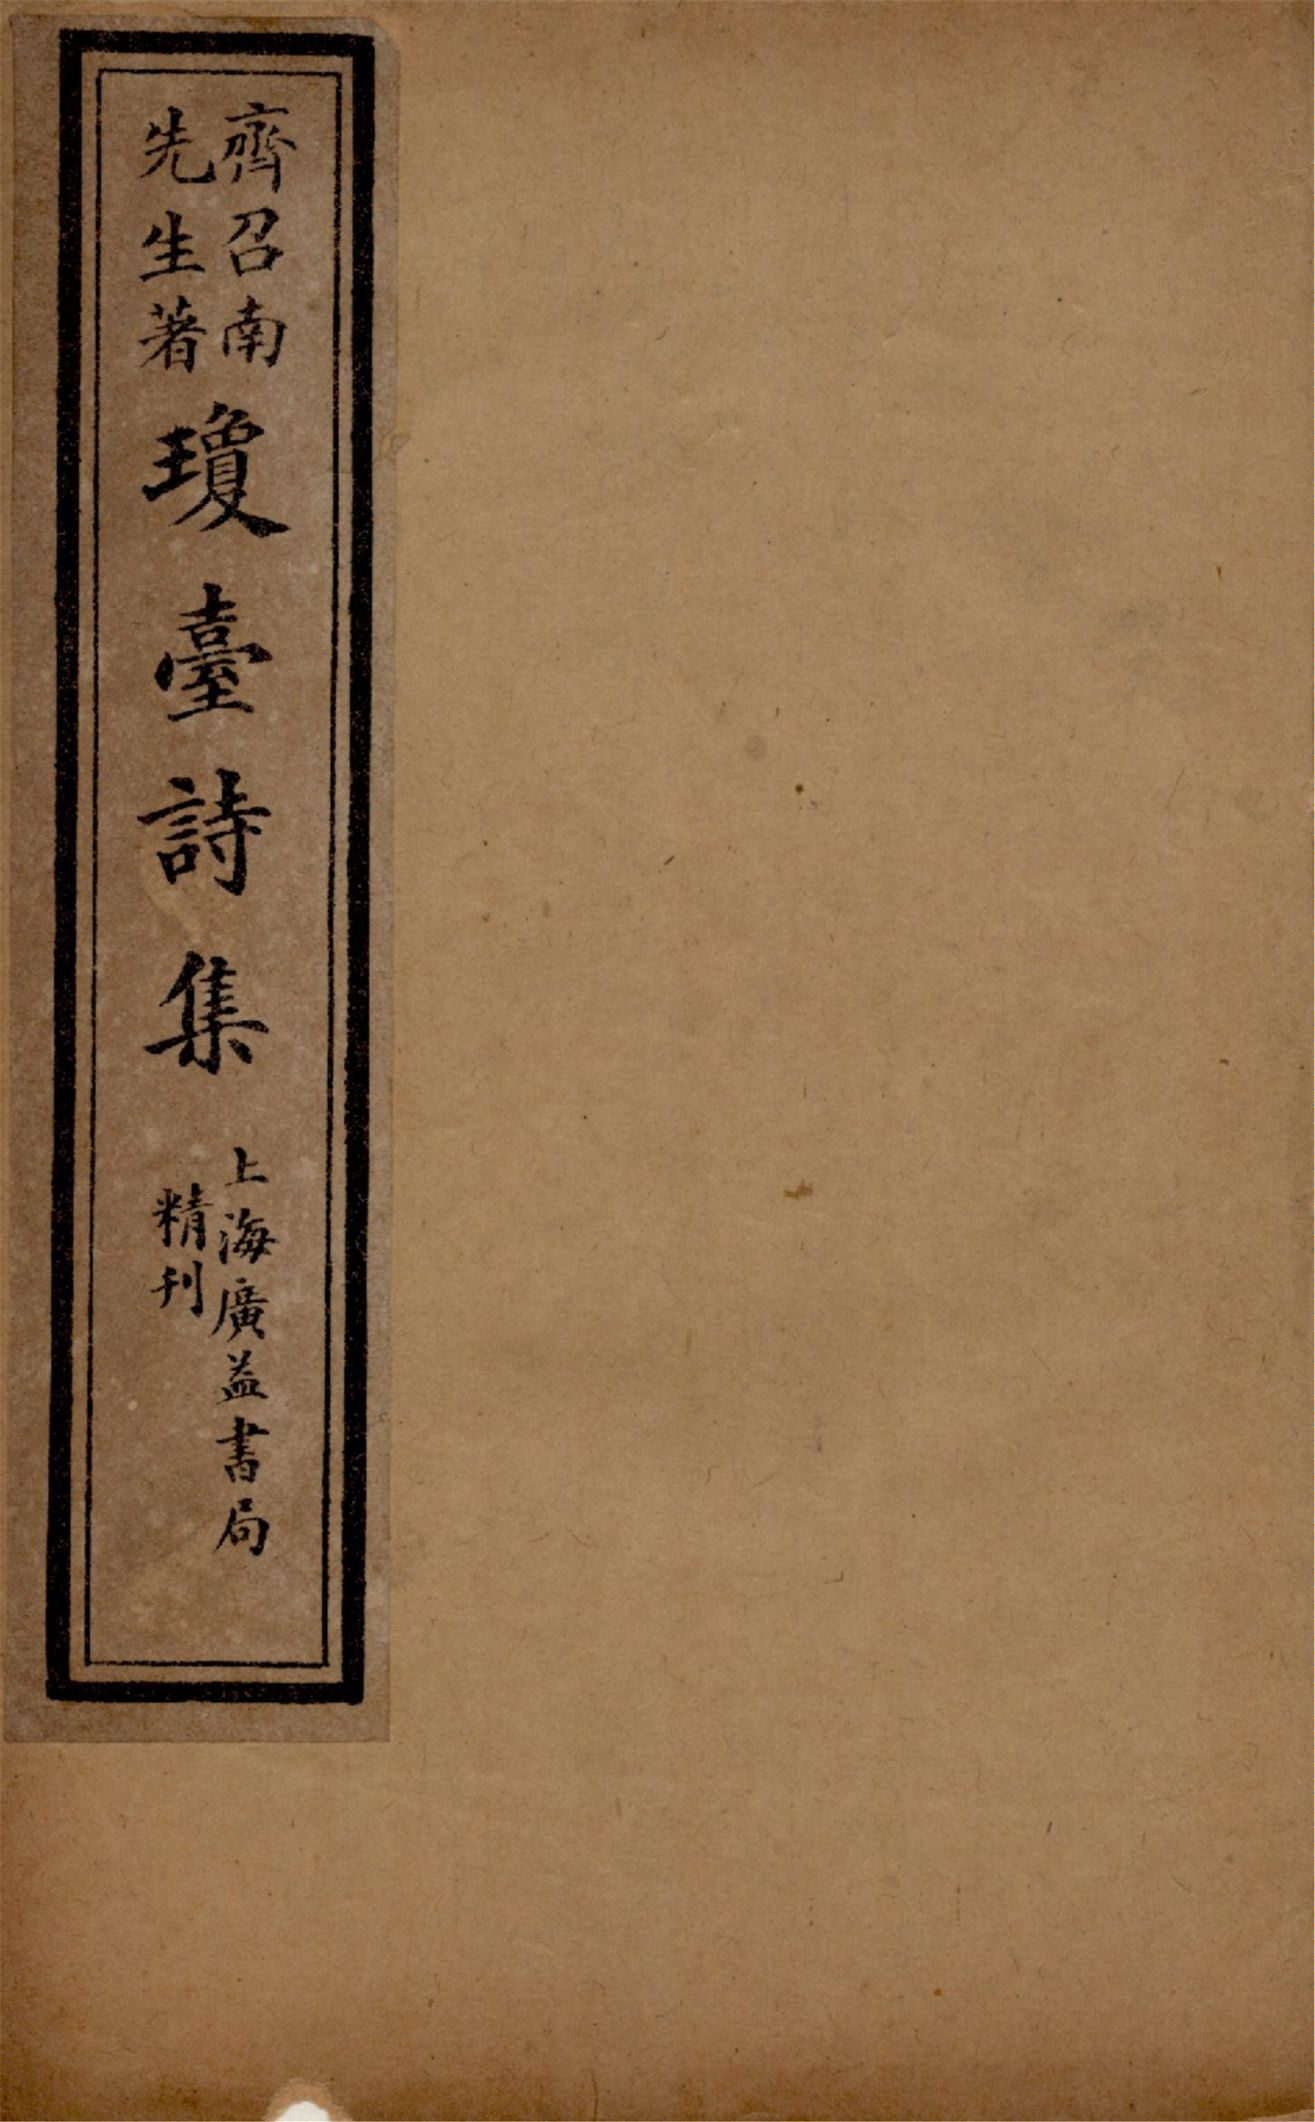 齊召南
先生著
瓊臺詩集
上海廣益書局
精刊